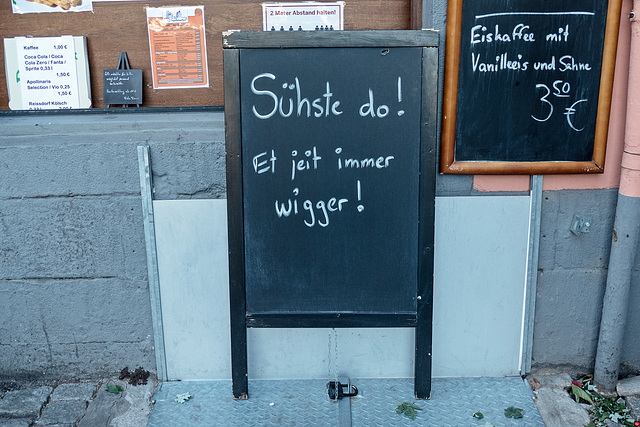 2 Meter Abstand halten!
Kaffee 1,00 €
Coca Cola / Coca
Cola Zero / Fanta /
Sprite 0,33 l
1,50 €
Apollinaris
Selection / Vio 0,25
1,50 €
Reissdorf Kölsch
Sühste do!
Et jeit immer
wigger!
Eiskaffee mit
Vanilleeis und Sahne
3 50 €